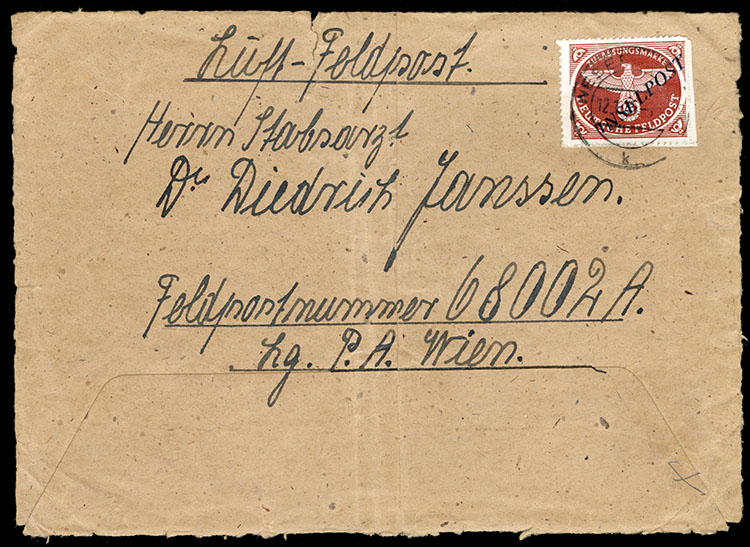 Luft-Feldpost.
ZULASSUNGSMARKE
DEUTSCHE FELDPOST
INSELPOST
12.
k
Herrn Stabsarzt
Dr Diedrich Janssen.
Feldpostnummer 68002A.
Lg. P. A. Wien.